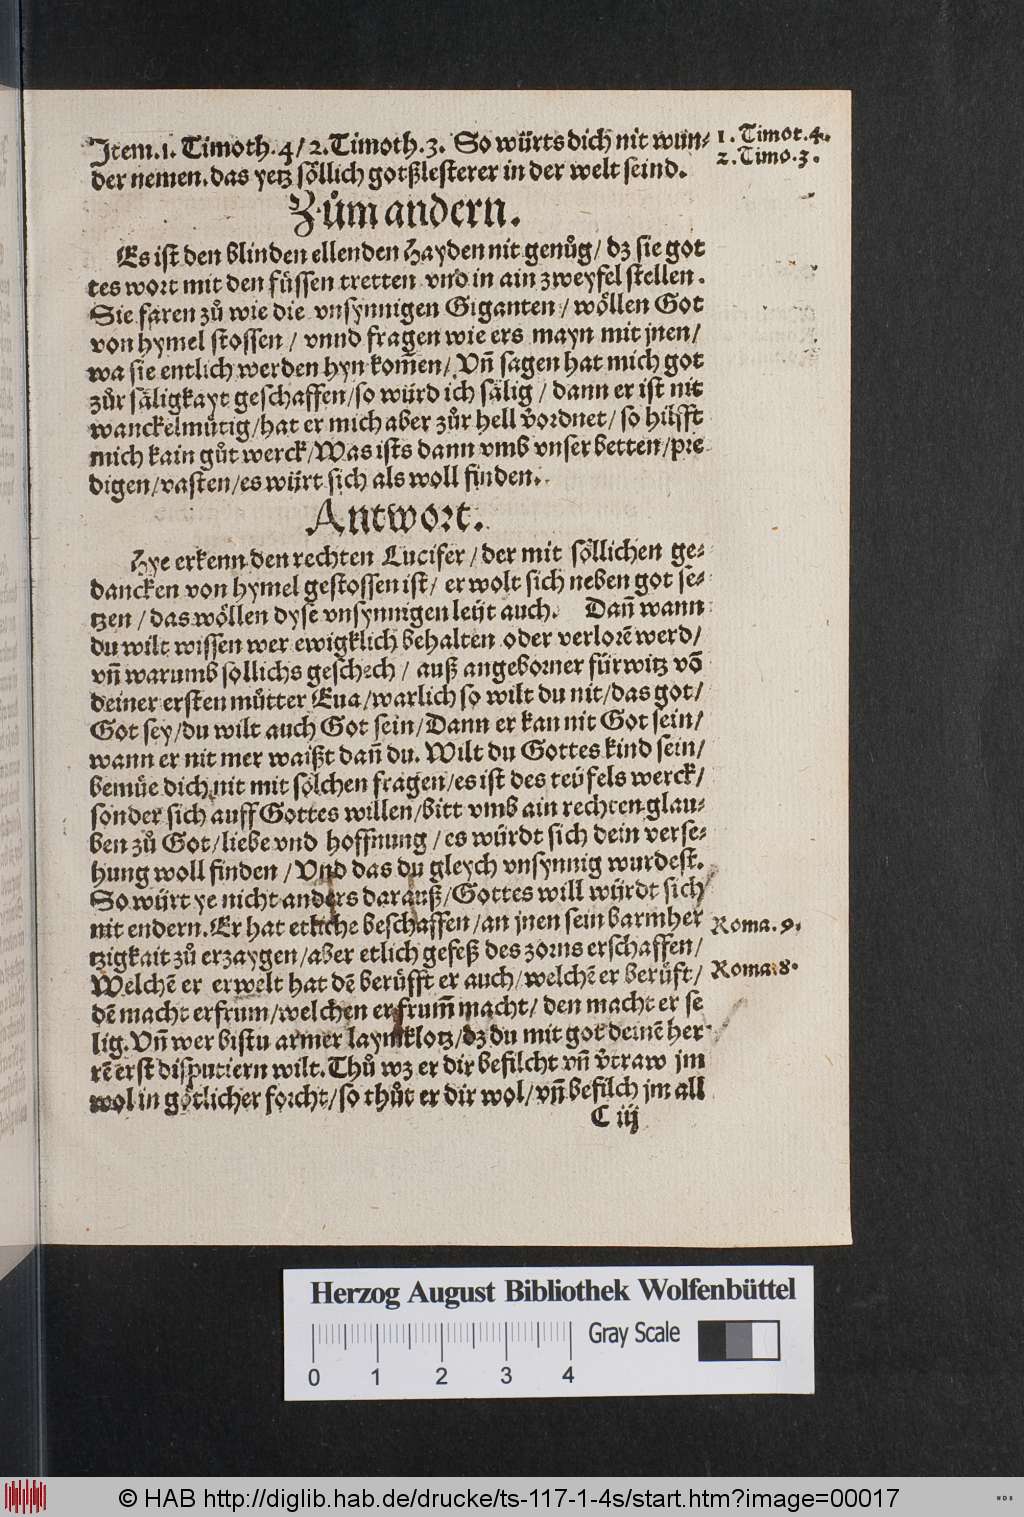 Item.1. Timoth. 4/ 2. Timoth. 3. So würts dich nit wun⸗
der nemen. das yetz söllich gotßlesterer in der welt seind.
1. Timot. 4.
2. Timo. 3.
Zům andern.
Es ist den blinden ellenden Hayden nit genůg/ dz sie got
tes wort mit den füssen tretten vnd in ain zweyfel stellen.
Sie faren zů wie die vnsynnigen Giganten/ wöllen Got
von hymel stossen/ vnnd fragen wie ers mayn mit jnen/
wa sie entlich werden hyn kom̃en/ Vñ sagen hat mich got
zůr säligkayt geschaffen/ so würd ich sälig/ dann er ist nit
wanckelmütig/ hat er mich aber zůr hell v̉ordnet/ so hilfft
mich kain gůt werck/ Was ists dann vmb vnser betten/ pre
digen/ vasten/ es wijrt sich als woll finden.
Antwort.
Hye erkenn den rechten Lucifer/ der mit söllichen ge⸗
dancken von hymel gestossen ist/ er wolt sich neben got se⸗
tzen/ das wöllen dyse vnsynnigen leijt auch. Dañ wann
du wilt wissen wer ewigklich behalten oder verlorẽ werd/
vñ warumb sollichs geschech/ auß angeborner fürwitz võ
deiner ersten můtter Eua/ warlich so wilt du nit/ das got/
Got sey/ du wilt auch Got sein/ Dann er kan nit Got sein/
wann er nit mer waißt dañ du. Wilt du Gottes kind sein/
bemüe dich nit mit sölchen fragen/ es ist des teüfels werck/
sonder sich auff Gottes willen/ bitt vmb ain rechten glau⸗
ben zů Got/ liebe vnd hoffnung/ es würdt sich dein verse⸗
hung woll finden/ Vnd das du gleych vnsynnig wurdest.
So würt ye nicht anders darauß/ Gottes will würdt sich
nit endern. Er hat etliche beschaffen/ an jnen sein barmher
tzigkait zů erzaygen/ aber etlich gefeß des zorns erschaffen/
Welchẽ er erwelt hat dẽ berüfft er auch/ welchẽ er berüft/
dẽ macht er frum/ welchen er frum̃ macht/ den macht er se
lig. Vñ wer bistu armer laymklotz/ dz du mit got deinẽ her
rẽ erst disputiern wilt. Thů wz er dir befilcht vñ v̉traw jm
wol in götlicher forcht/ so thůt er dir wol/ vñ befilch jm all
Roma. 9.
Roma. 8.
C iij
Herzog August Bibliothek Wolfenbüttel
Gray Scale
0 1 2 3 4
© HAB http://diglib.hab.de/drucke/ts-117-1-4s/start.htm?image=00017